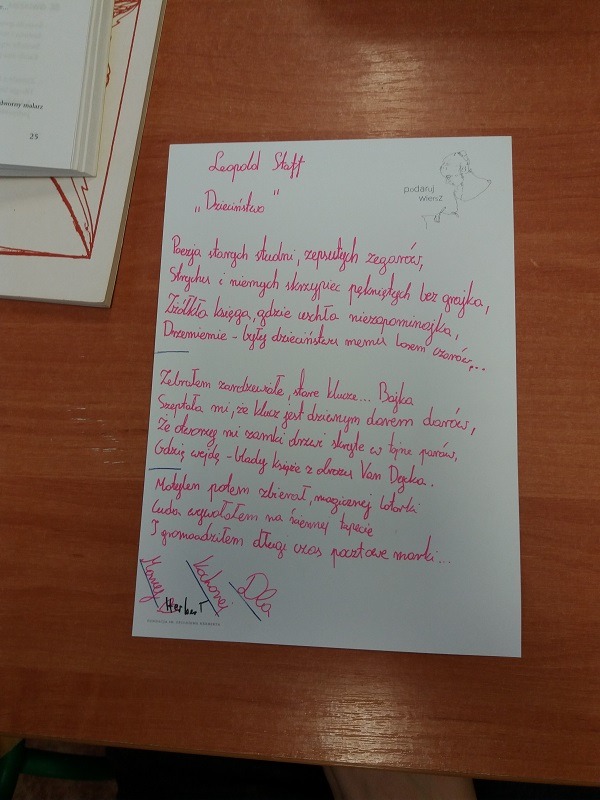 dworny malarz
25
Leopold Staff
„Dzieciństwo"
podaruj
wiersz
Poezja starych studni, zepsutych zegarów,
Strychu i niemych skrzypiec pękniętych bez grajka,
Zżółkła księga, gdzie uschła niezapominajka,
Drzemiemie - były dzieciństwu memu lasem czarów...
Zebrałem zardzewiałe, stare klucze... Bajka
Szeptała mi, że klucz jest dziwnym darem darów,
Że otworzy mi zamki drzwi skryte w tajne parów,
Gdzie wejdę - blady książe z obrazu Van Dycka.
Motylem potem zbierał, magicznej latarki
Cuda wywołałem na ściennej tapecie
I gromadziłem długi czas pocztowe marki...
Dla
Kochanej
Mamy
Herbert